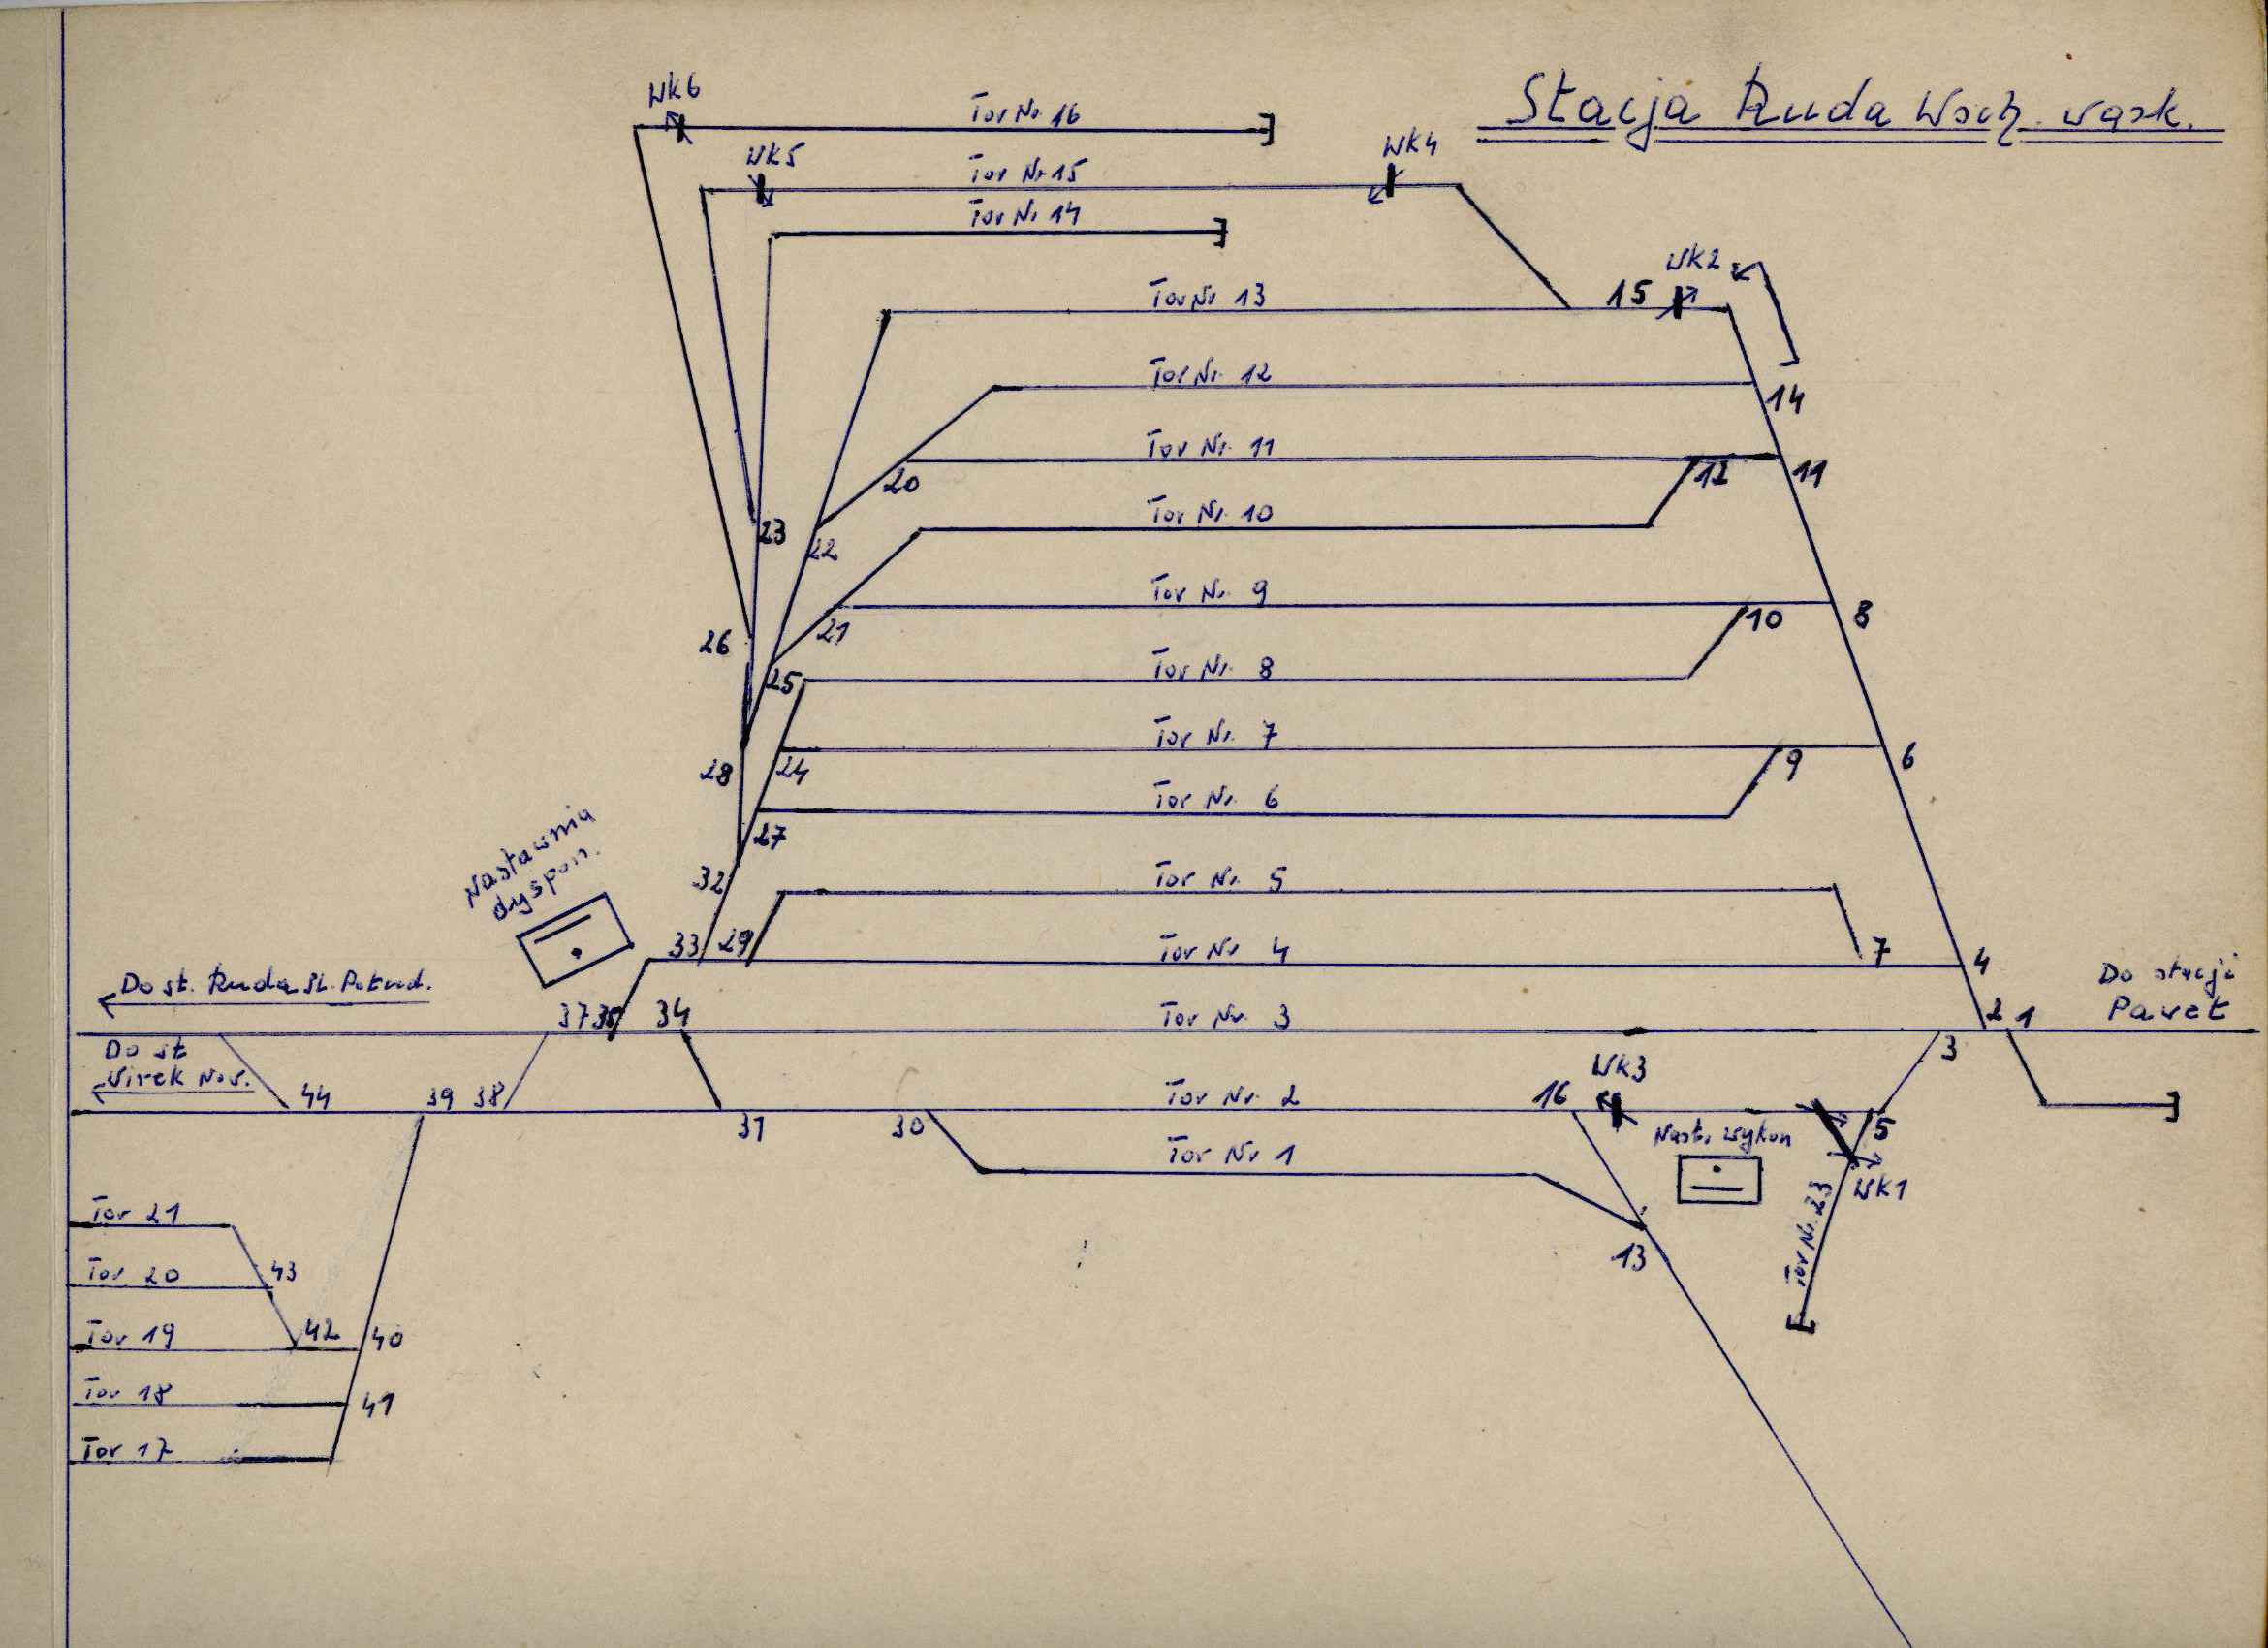 Stacja Ruda Wsch. wąsk.
Wk6
Tor Nr 16
Wk5
Tor Nr 15
Wk4
Tor Nr 14
Wk2
Tor Nr 13
15
Tor Nr. 12
14
Tor Nr. 11
20
12
11
Tor Nr. 10
23
22
Tor Nr. 9
21
10
8
26
Tor Nr. 8
25
Tor Nr. 7
28
24
9
6
Tor Nr. 6
27
Nastawnia
dyspon.
32
Tor Nr. 5
33
29
Tor Nr 4
7
4
Do stacji
Paweł
Do st. Ruda Śl. Połud.
37
35
34
Tor Nr. 3
2
1
3
Do st
Wirek Now.
44
39
38
31
30
Tor Nr. 2
16
Wk3
Nast. wykon
5
Tor Nr 1
Wk1
Tor Nr. 23
13
Tor 21
Tor 20
43
Tor 19
42
40
Tor 18
41
Tor 17